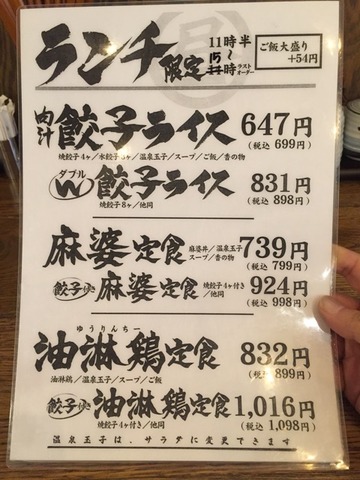 ランチ限定
11時半
〜
15時 ラストオーダー
ご飯大盛り
+54円
肉汁餃子ライス 647円
(税込 699円)
焼餃子4ヶ/水餃子3ヶ/温泉玉子/スープ/ご飯/香の物
ダブルW餃子ライス 831円
(税込 898円)
焼餃子8ヶ/他同
麻婆定食 麻婆丼/温泉玉子 スープ/香の物 739円
(税込 799円)
餃子付き 麻婆定食 焼餃子4ヶ付き/他同 924円
(税込 998円)
ゆうりんちー
油淋鶏定食 832円
(税込 899円)
油淋鶏/温泉玉子/スープ/ご飯
餃子付き 油淋鶏定食 1,016円
(税込 1,098円)
焼餃子4ヶ付き/他同
温泉玉子は、サラダに変更できます